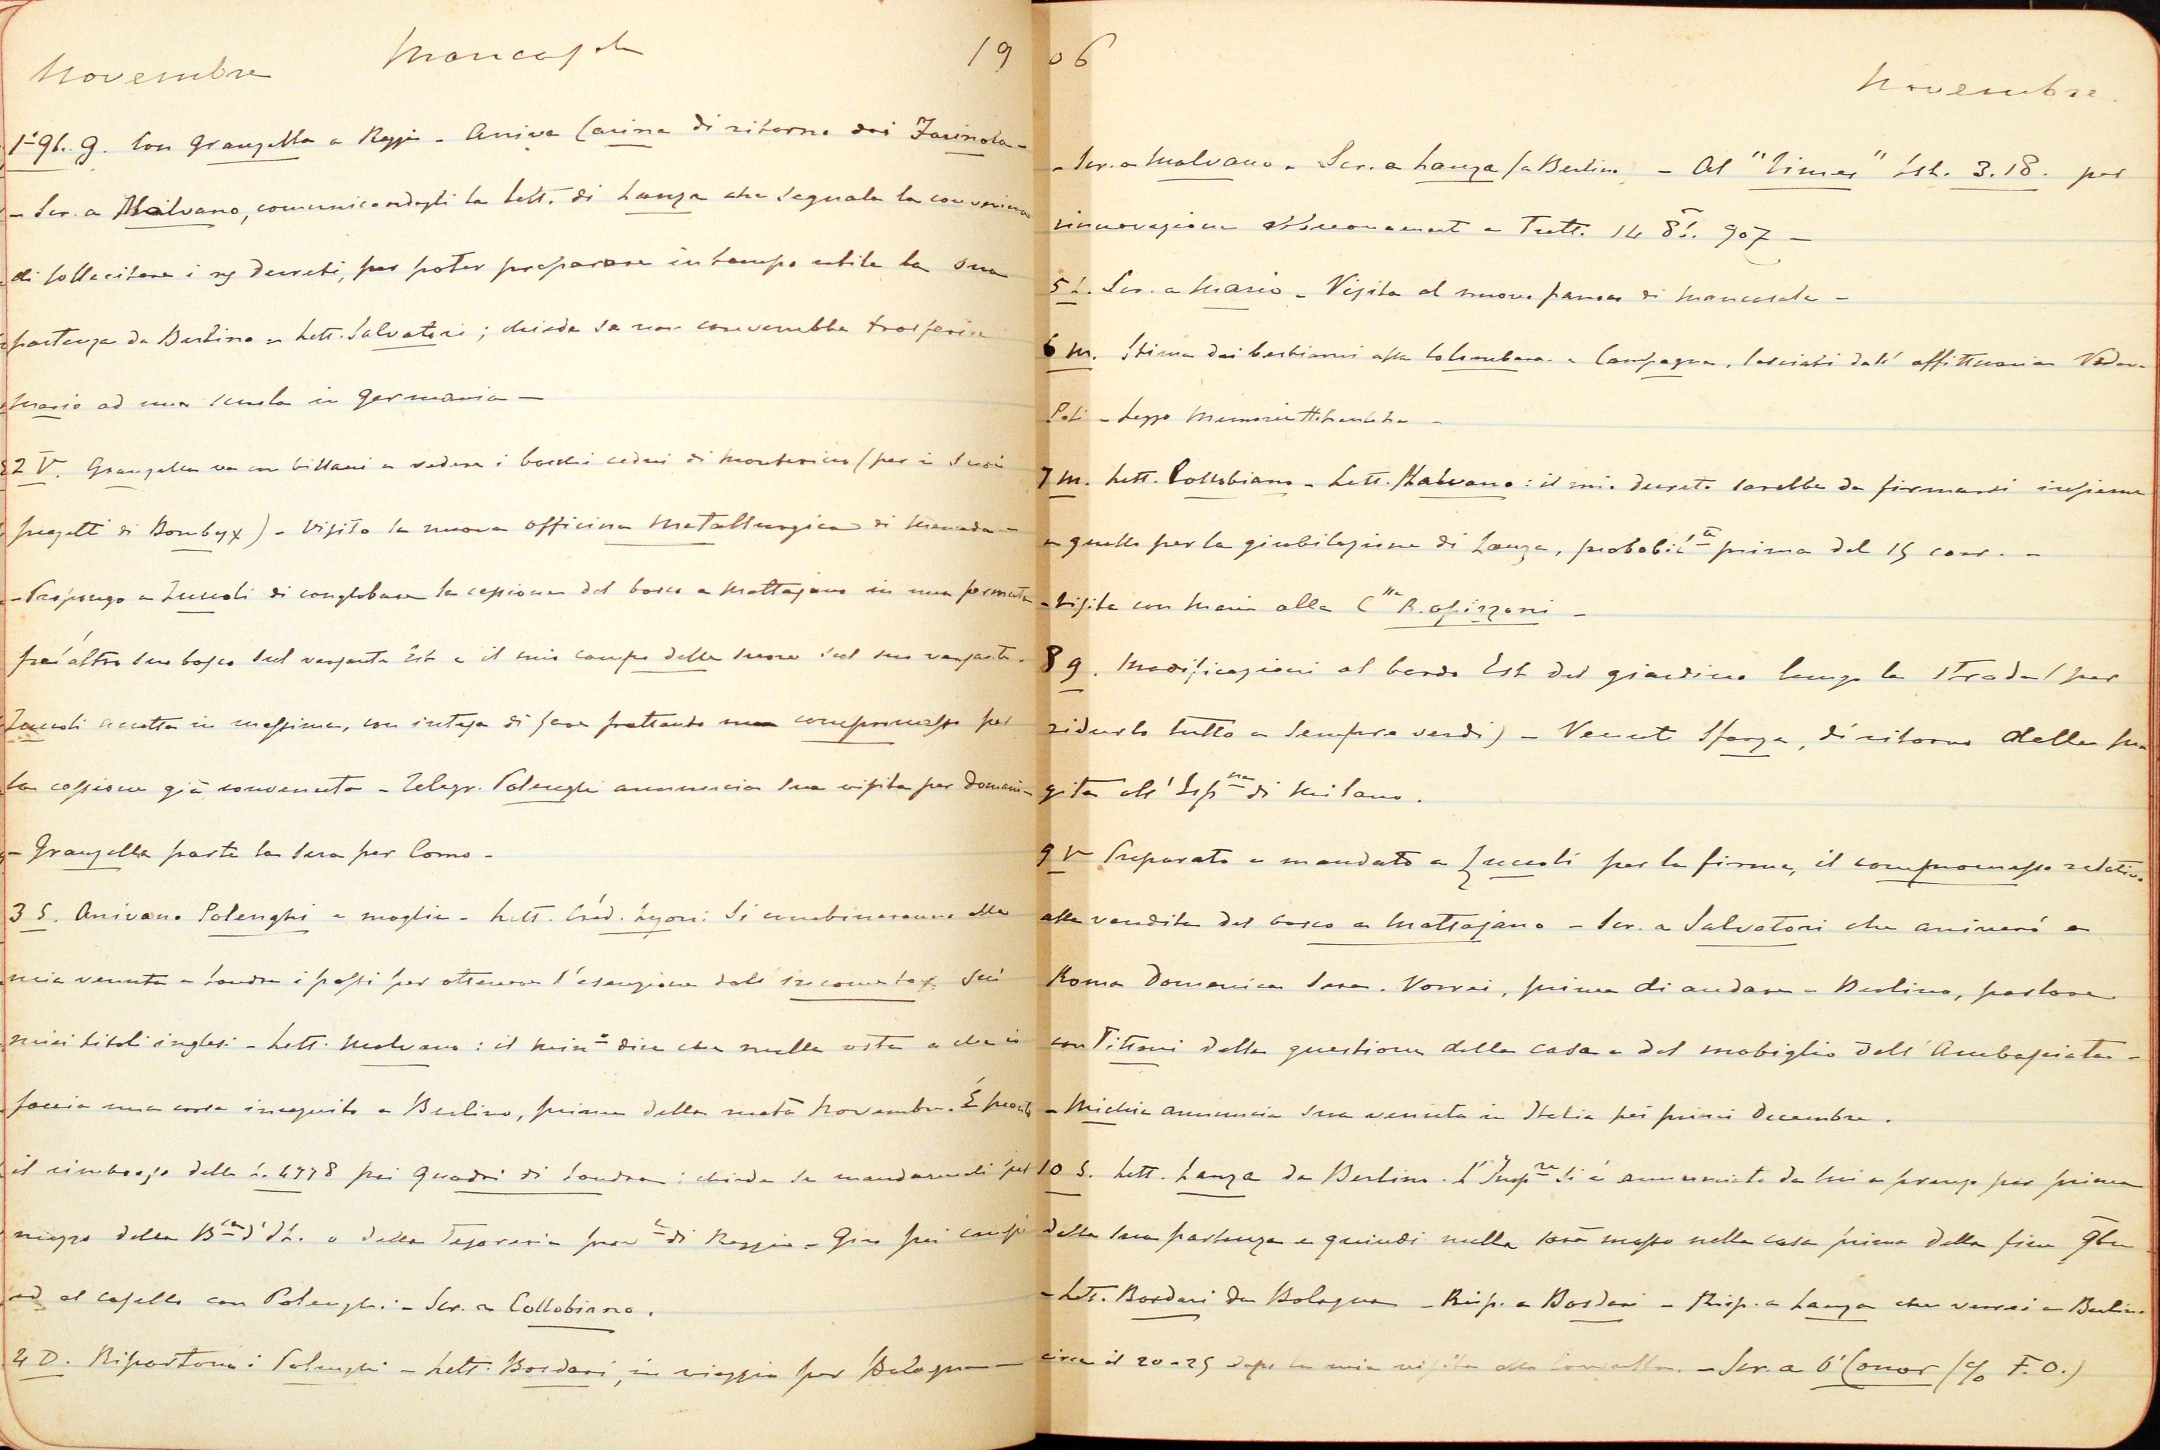 Novembre Mancasale 19
1º 9b. g. Con Granzella a Reggio - Arriva Carina di ritorno dai Farinola -
- Scr. a Malvano, comunicandogli la lett. di Lanza che segnala la convenienza
di sollecitare i rg decreti, per poter preparare in tempo utile la sua
partenza da Berlino - Lett. Salvatori; chiede se non converrebbe trasferire
Mario ad una scuola in Germania -
2 V. Granzella va con Villani a vedere i boschi cedui di Montericco (per i suoi
progetti di Bombyx) - Visito la nuova officina metallurgica di
- Propongo a Zuccoli di conglobare la cessione del bosco a Mattajano in una permuta
fra l'altro suo bosco sul versante Est e il mio campo delle Suore sul suo versante.
Zuccoli accetta in massima, con intesa di fare frattanto un compromesso per
la cessione già convenuta - Telegr. Polenghi annuncia sua visita per domani -
- Granzella parte la sera per Como -
3 S. Arrivano Polenghi e moglie - Lett. Créd. Lyon: Si combineranno alla
mia venuta a Londra i passi per ottenere l'esenzione dall' income tax sui
miei titoli inglesi - Lett. Malvano: il Min.º dice che nulla osta a che io
faccia una corsa incognito a Berlino, prima della metà Novembre. È pronto
il rimborso delle L. 4778 pei quadri di Londra: chiede se mandarmeli per
mezzo della B.ca d'It. o della Tesoreria prov.le di Reggio - Giro pei campi
ed al casello con Polenghi - Scr. a Collobiano.
4 D. Ripartono i Polenghi - Lett. Bordari, in viaggio per Bologna -
06 Novembre.
- Scr. a Malvano - Scr. a Lanza (a Berlino) - Al "Times" Lst. 3.18. per
rinnovazione abbuonament a tutt. 14 8b. 907 -
5 L. Scr. a Mario - Visita al nuovo parroco di Mancasale -
6 M. Stima dei bestiami alla Colombara e Campagna, lasciati dall' affittuaria Vedova
Poli - Leggo Memorie Hohenlohe -
7 M. Lett. Collobiano - Lett. Malvano: il mio decreto sarebbe da firmarsi insieme
a quello per la giubilazione di Lanza, probabil.te prima del 15 corr. -
- Visita con Maria alla C.ssa R. Opizzoni -
8 g. Modificazioni al bordo Est del giardino lungo la strada (per
ridurlo tutto a sempre verdi) - Venut Sforza, di ritorno dalla sua
gita all' Esp.ne di Milano.
9 V Preparato e mandato a Zuccoli per la firma, il compromesso relativo
alla vendita del bosco a Mattajano - Scr. a Salvatori che arriverò a
Roma Domenica sera. Vorrei, prima di andare a Berlino, parlare
con Tittoni della questione della casa e del mobiglio dell' Ambasciata -
- Michie annuncia sua venuta in Italia pei primi Decembre.
10 S. Lett. Lanza da Berlino. L' Imp.re si è annunciato da lui a pranzo per prima
della sua partenza e quindi nulla sarà mosso nella casa prima della fine 9bre
- Lett. Bordari da Bologna - Risp. a Bordari - Risp. a Lanza che verrei a Berlino
circa il 20-25 dopo la mia visita alla Consulta. - Scr. a O'Conor (c/o F.O.)